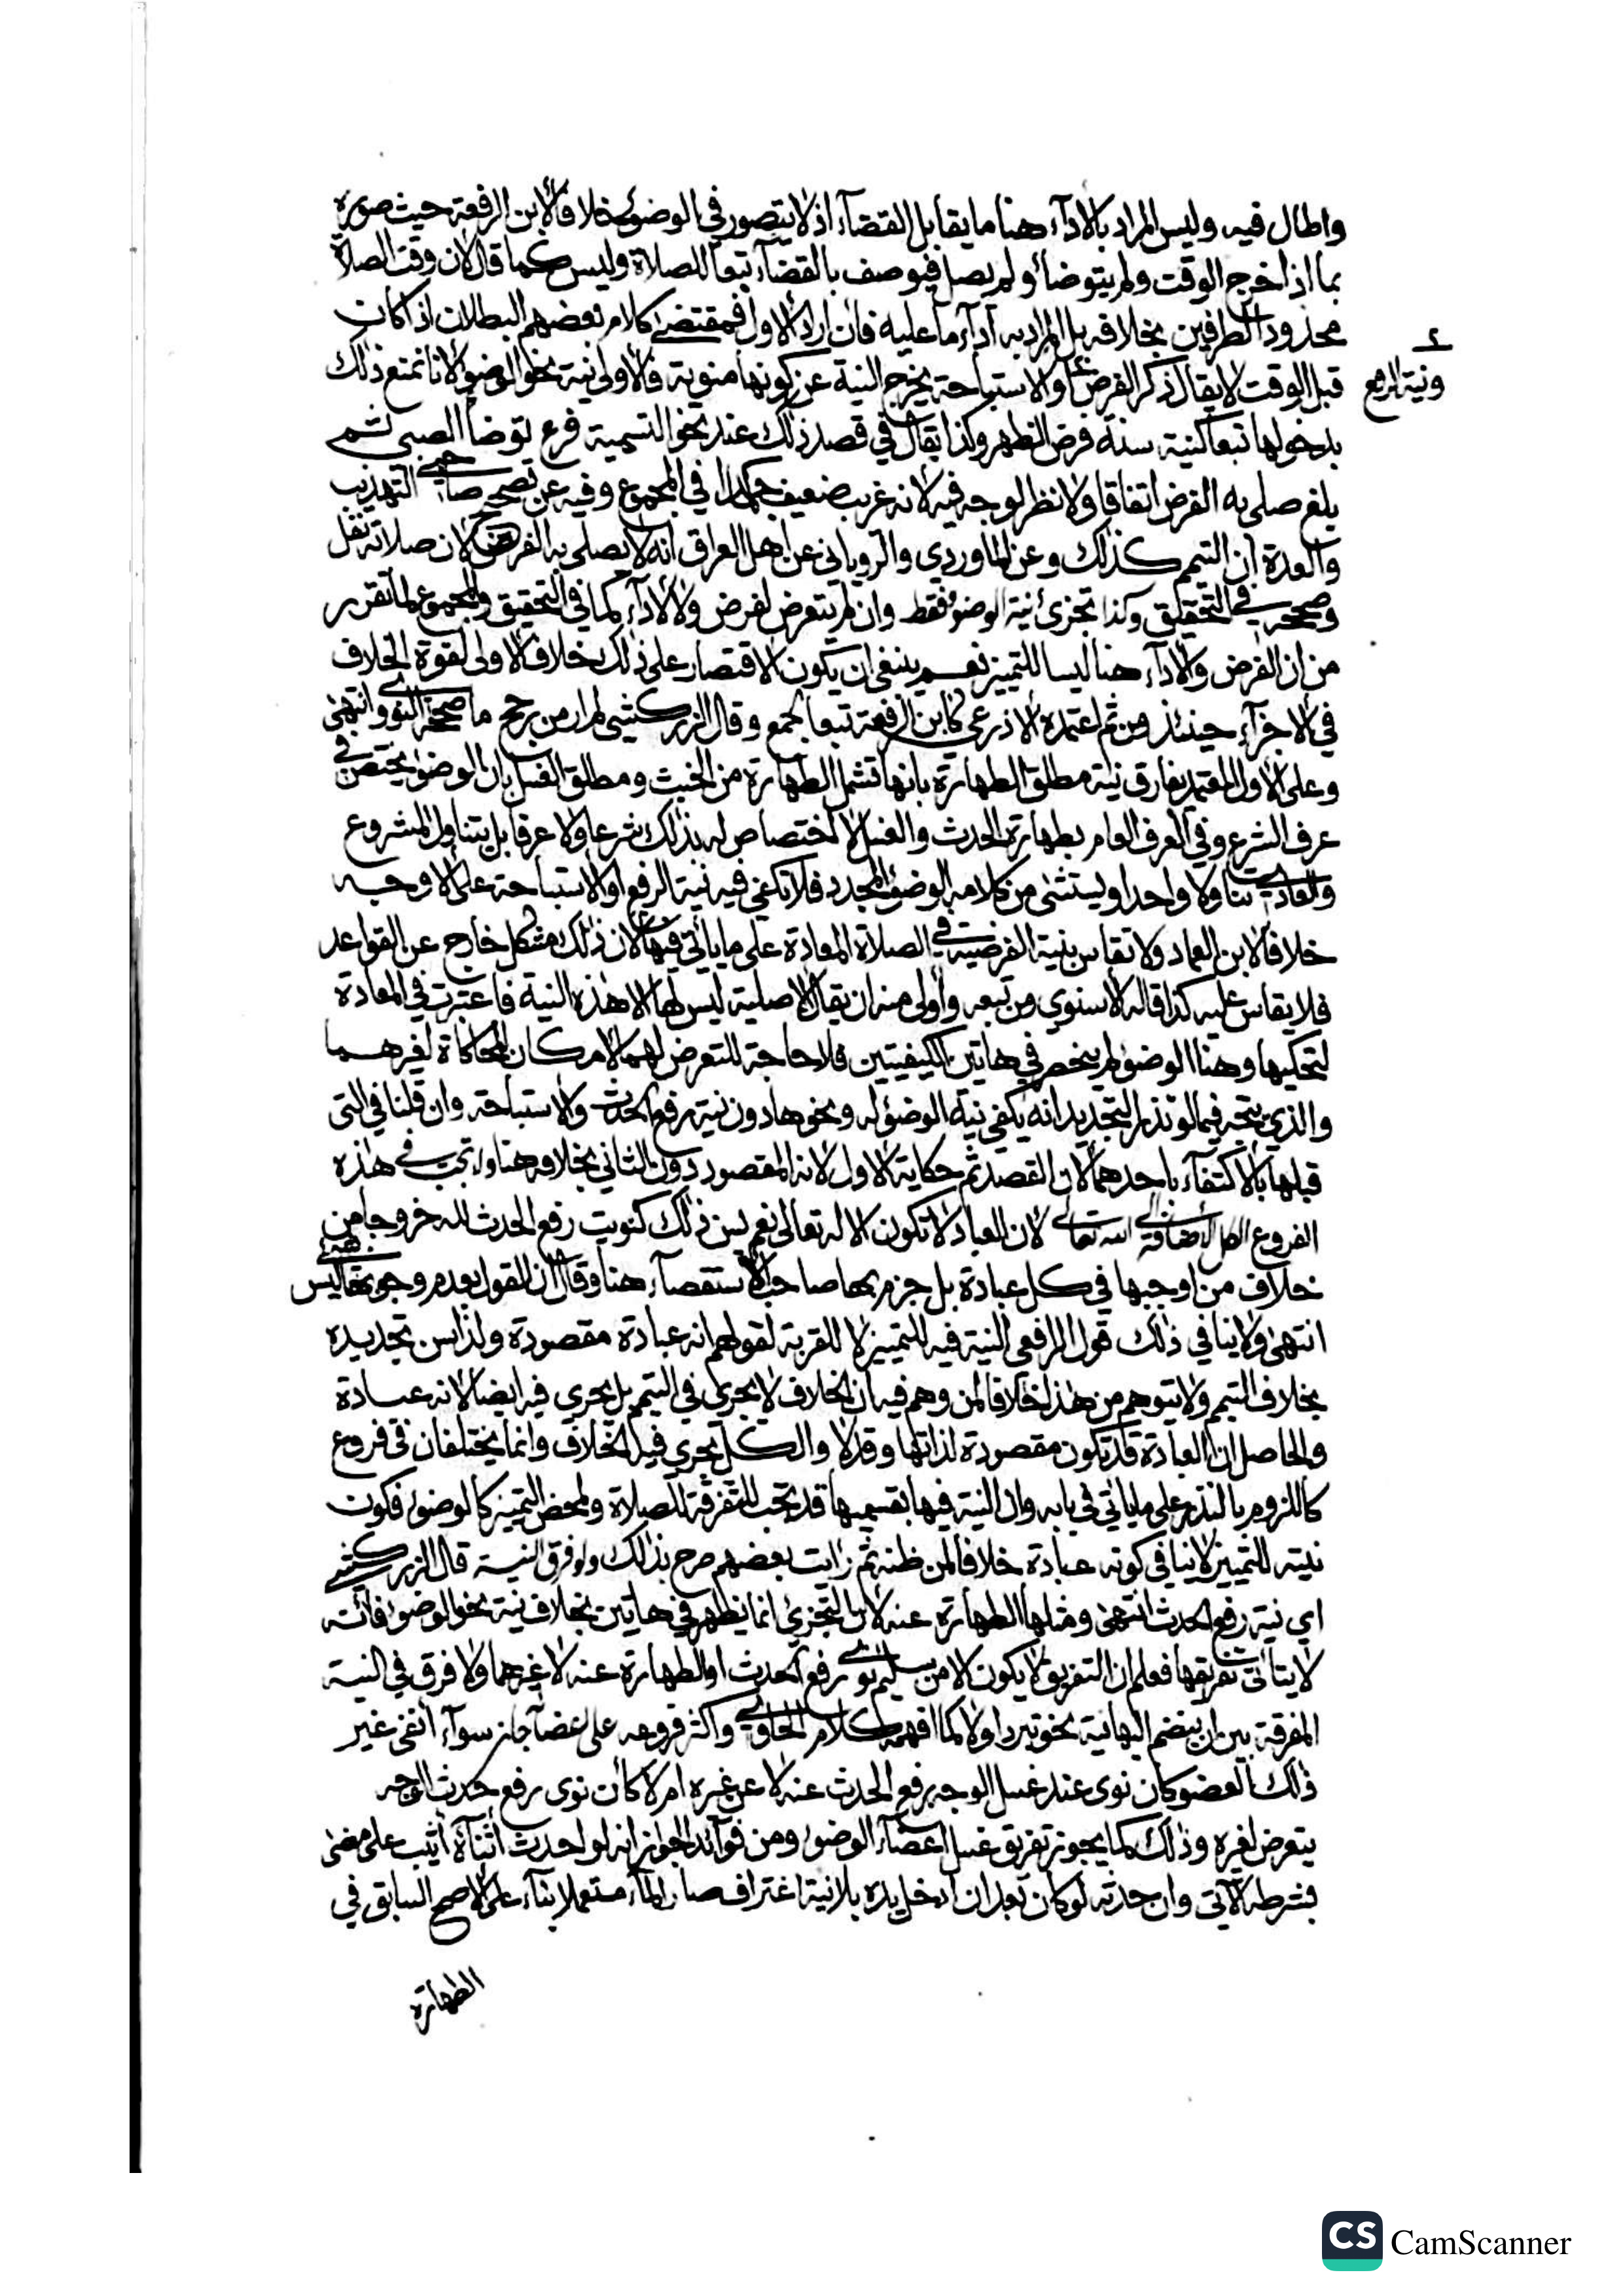 واطال فيه وليس المراد بالاداء هنا ما يقابل القضاء اذ لا يتصور في الوضوء خلافا لابن الرفعة حيث صوره
بما اذا خرج الوقت ولم يتوضا ولم يصل فيوصف بالقضاء تبعا للصلاة وليس كما قال لان وقت الصلاة
محدود الطرفين بخلافه بل المراد به اداء ما عليه فان اراد الاول فمقتضى كلام بعضهم البطلان اذا كان
قبل الوقت لا يقال ذكر الفرض والاستباحة يخرج النية عن كونها منوية فالاولى نية نحو الوضوء لانا نمنع ذلك
ونية الرفع
بدخولها تبعا كنية سنة فرض الظهر وكذا يقال في قصد ذلك عند نحو التسمية فرع توضا الصبي ثم
بلغ صلى به الفرض اتفاقا ولا نظر لوجه فيه لانه غريب ضعيف جدا كما في المجموع وفيه عن تصحيح صاحبي التهذيب
والعدة ان التيمم كذلك وعن الماوردي والروياني عن اهل العراق انه لا يصلى به الفرض لان صلاته نفل
وصححه في التحقيق وكذا تجزئ نية الوضوء فقط وان لم يتعرض لفرض ولا لاداء كما في التحقيق والمجموع لما تقرر
من ان الفرض والاداء هنا ليسا للتمييز نعم ينبغي ان يكون الاقتصار على ذلك خلاف الاولى لقوة الخلاف
في الاجزاء حينئذ ومن ثم اعتمده الاذرعي كابن الرفعة تبعا لجمع وقال الزركشي لم ار من رجح ما صححه النووي انتهى
وعلى الاول المعتمد يفارق نية مطلق الطهارة بانها تشمل الطهارة من الخبث ومطلق الغسل بان الوضوء يختص في
عرف الشرع وفي العرف العام بطهارة الحدث والغسل لا اختصاص له بذلك شرعا ولا عرفا بل يتناول المشروع
والعادي تناولا واحدا ويستثنى من كلامه الوضوء المجدد فلا تكفي فيه نية الرفع او الاستباحة على الاوجه
خلافا لابن العماد ولا تقاس بنية الفرضية في الصلاة المعادة على ما ياتي فيها لان ذلك مشكل خارج عن القواعد
فلا يقاس عليه كذا قاله الاسنوي ومن تبعه واولى منه ان يقال الاصلية ليس لها الا هذه النية فاعتبرت في المعادة
لتحكيها وهنا الوضوء لم ينحصر في هاتين الكيفيتين فلا حاجة للتعرض لهما لامكان المحاكاة لغيرهما
والذي يتجه فيما لو نذر التجديد انه يكفي نية الوضوء له ونحوها دون نية رفع الحدث والاستباحة وان قلنا في التي
قبلها بالاكتفاء باحدهما لان القصد ثم حكاية الاول لانه المقصود دون الثاني بخلافه هنا ولا تجب في هذه
الفروع الاضافة الى الله تعالى لان العبادة لا تكون الا له تعالى نعم يسن ذلك كنويت رفع الحدث لله خروجا من
خلاف من اوجبها في كل عبادة بل جزم بها صاحب الاستقصاء هنا وقال ان القول بعدم وجوبها ليس بشيء
انتهى ولا ينافي ذلك قول الرافعي النية فيه للتمييز لا للقربة لقولهم انه عبادة مقصودة ولذا سن تجديده
بخلاف التيمم ولا يتوهم من هذا خلافا لمن وهم فيه ان الخلاف لا يجري في التيمم بل يجري فيه ايضا لانه عبادة
والحاصل ان العبادة قد تكون مقصودة لذاتها وقد لا والكل يجري فيه الخلاف وانما يختلفان في فروع
كاللزوم بالنذر على ما ياتي في بابه وان النية فيها بقسميها قد تجب للتفرقة للصلاة ولمحض التمييز كالوضوء فكون
نيته للتمييز لا ينافي كونه عبادة خلافا لمن ظنه ثم رايت بعضهم صرح بذلك ولو فرق النية قال الزركشي
اي نية رفع الحدث انتهى ومثلها الطهارة عنه لان التجزئ انما يظهر في هاتين بخلاف نية نحو الوضوء فانه
لا يتاتى تفريقها فعلم ان التفريق لا يكون الا من سليم نوى رفع الحدث او الطهارة عنه لا غيرهما ولا فرق في النية
المفرقة بين ان ينضم اليها نية نحو تبرد اولا كما افهمه كلام الحاوي واكثر فروعه على اعضاء جاز سواء انفى غير
ذلك العضو كان نوى عند غسل الوجه رفع الحدث عنه لا عن غيره ام لا كان نوى رفع حدث الوجه
يتعرض لغيره وذلك كما يجوز تفريق غسل اعضاء الوضوء ومن فوائد الجواز انه لو احدث اثناءه اثيب على ما مضى
بشرطه الاتي وان حدثه لو كان بعد ان ادخل يده بلا نية اغتراف صار الماء مستعملا بناء على الاصح السابق في
الطهارة
CS CamScanner